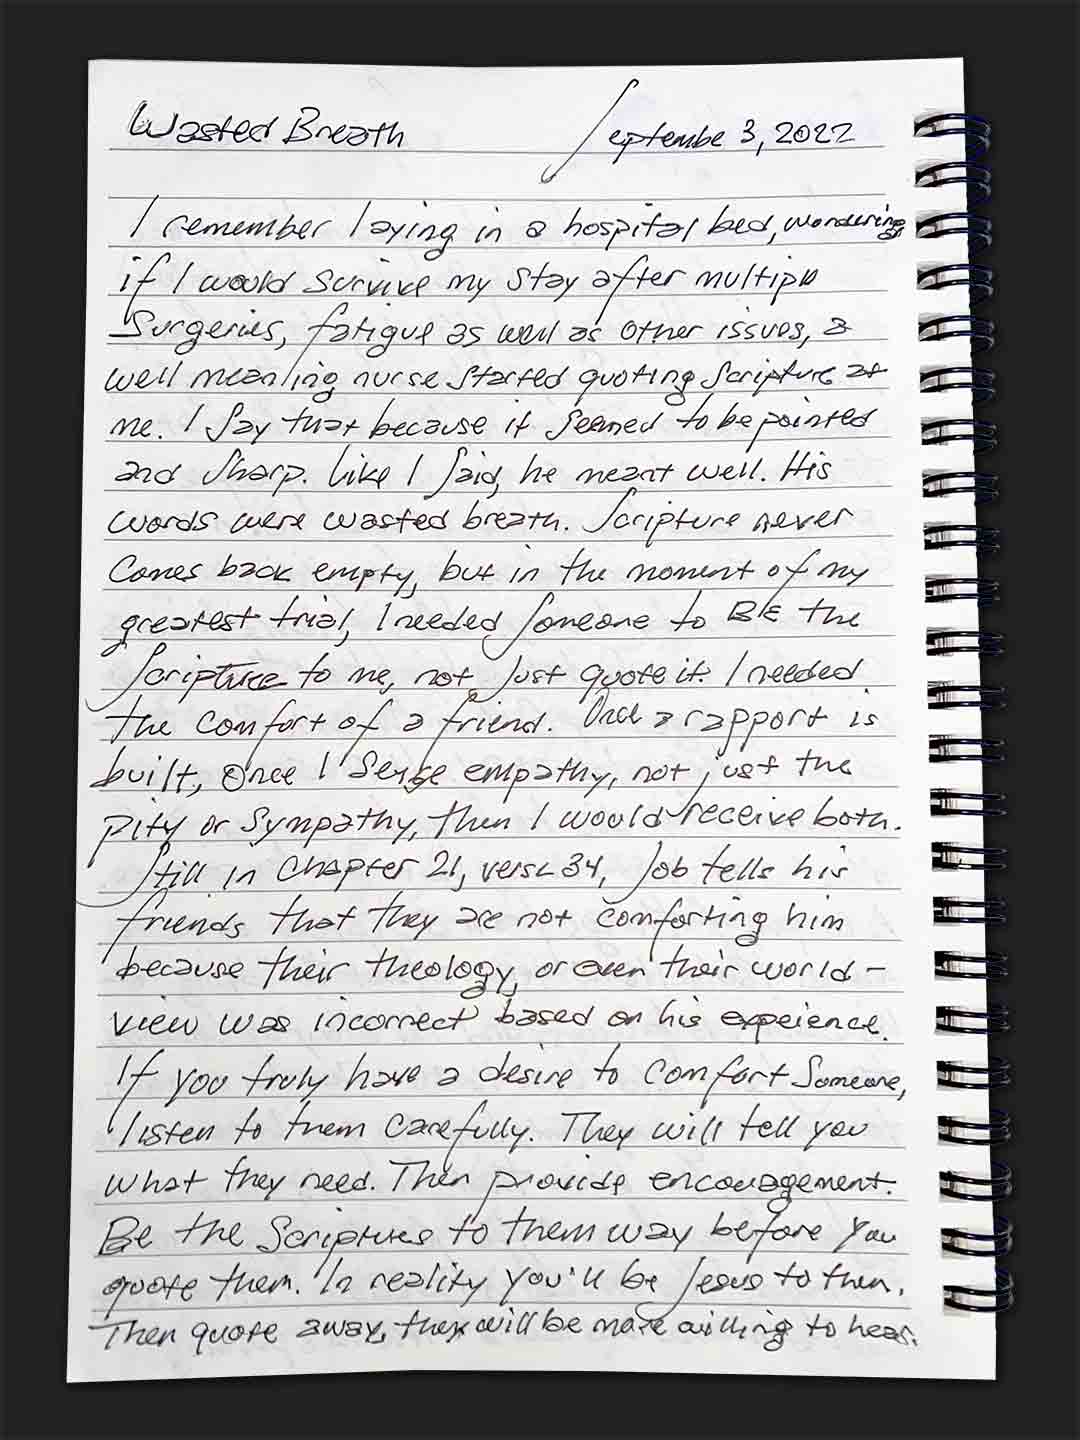 Wasted Breath September 3, 2022
I remember laying in a hospital bed, wondering
if I would survive my stay after multiple
surgeries, fatigue as well as other issues, a
well meaning nurse started quoting Scripture at
me. I say that because it seemed to be pointed
and sharp. Like I said, he meant well. His
words were wasted breath. Scripture never
comes back empty, but in the moment of my
greatest trial, I needed someone to BE the
Scripture to me, not just quote it. I needed
the comfort of a friend. Once a rapport is
built, once I sense empathy, not just the
pity or sympathy, then I would receive both.
Still in Chapter 21, verse 34, Job tells his
friends that they are not comforting him
because their theology, or even their world-
view was incorrect based on his expeience.
If you truly have a desire to comfort someone,
listen to them carefully. They will tell you
what they need. Then provide encouagement.
Be the Scriptures to them way before you
quote them. In reality you'll be Jesus to them.
Then quote away, they will be more willing to hear.